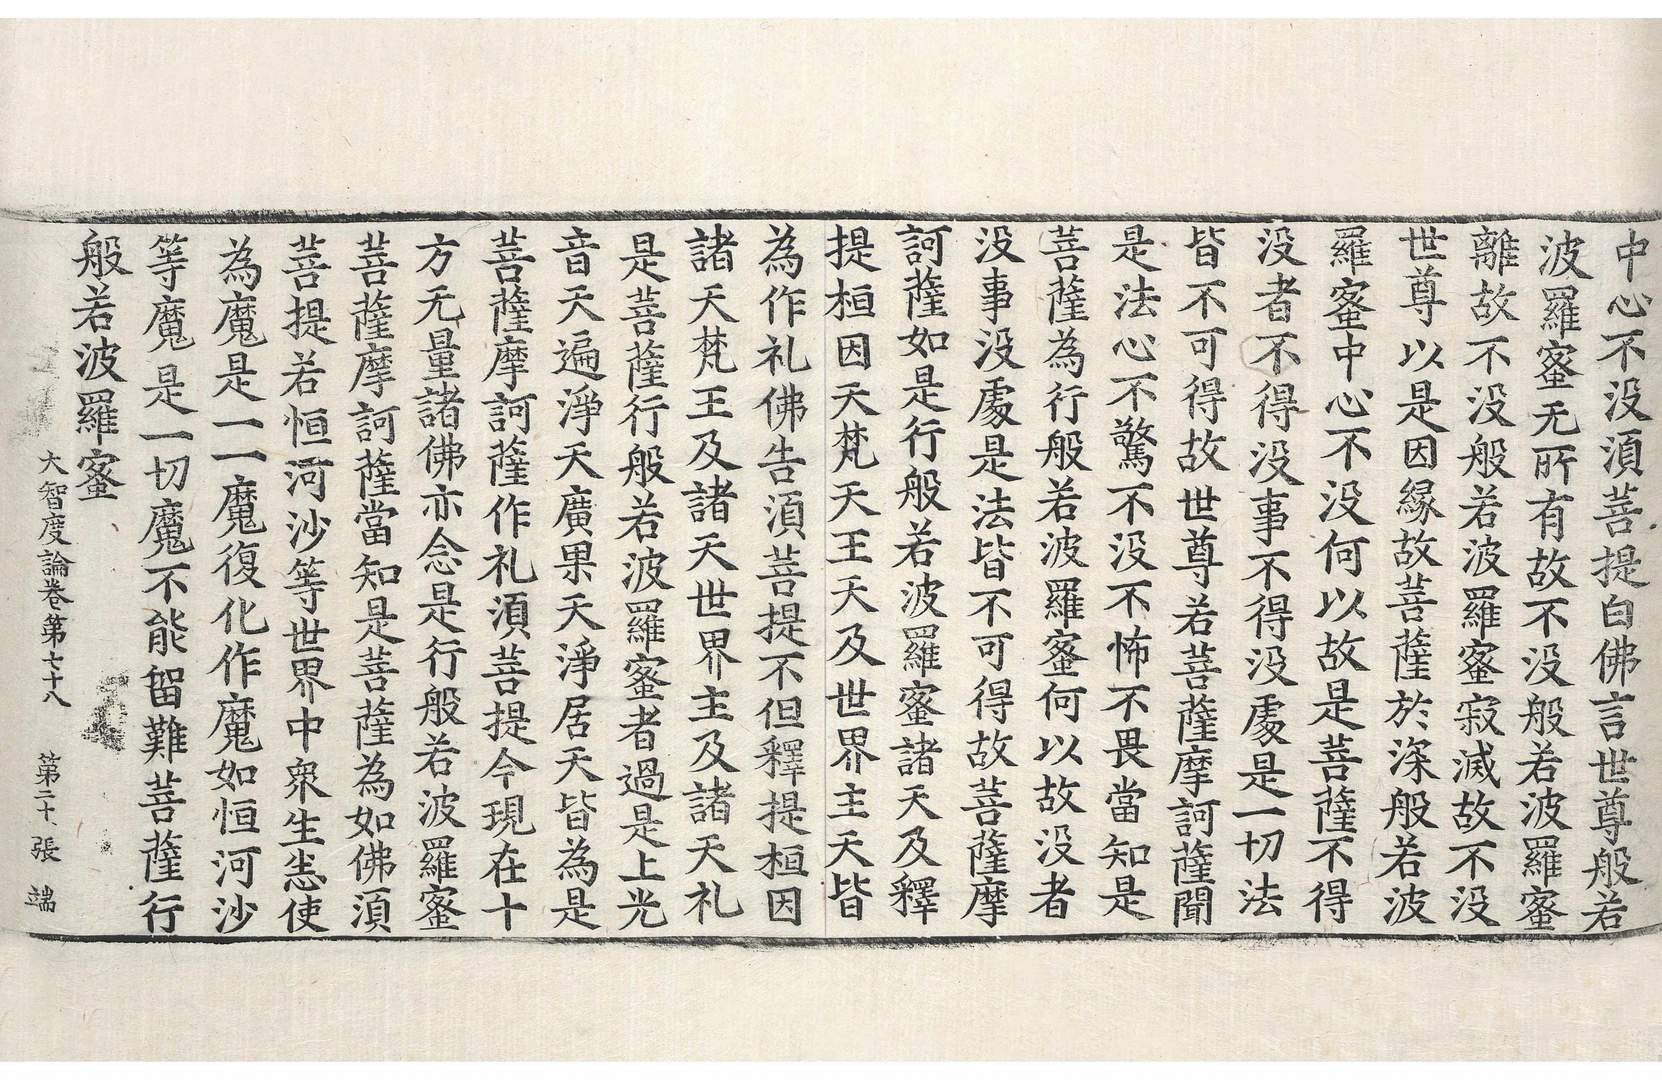 中心不没湏菩提白佛言世尊般若
波羅蜜无所有故不没般若波羅蜜
離故不没般若波羅蜜寂滅故不没
世尊以是因緣故菩薩於深般若波
羅蜜中心不没何以故是菩薩不得
没者不得没事不得没處是一切法
皆不可得故世尊若菩薩摩訶薩聞
是法心不驚不没不怖不畏當知是
菩薩為行般若波羅蜜何以故没者
没事没處是法皆不可得故菩薩摩
訶薩如是行般若波羅蜜諸天及釋
提桓因天梵天王天及世界主天皆
為作礼佛告湏菩提不但釋提桓因
諸天梵王及諸天世界主及諸天礼
是菩薩行般若波羅蜜者過是上光
音天遍淨天廣果天淨居天皆為是
菩薩摩訶薩作礼湏菩提今現在十
方无量諸佛亦念是行般若波羅蜜
菩薩摩訶薩當知是菩薩為如佛湏
菩提若恒河沙等世界中衆生悉使
為魔是一一魔復化作魔如恒河沙
等魔是一切魔不能留難菩薩行
般若波羅蜜
大智度論卷第七十八 第二十張 端